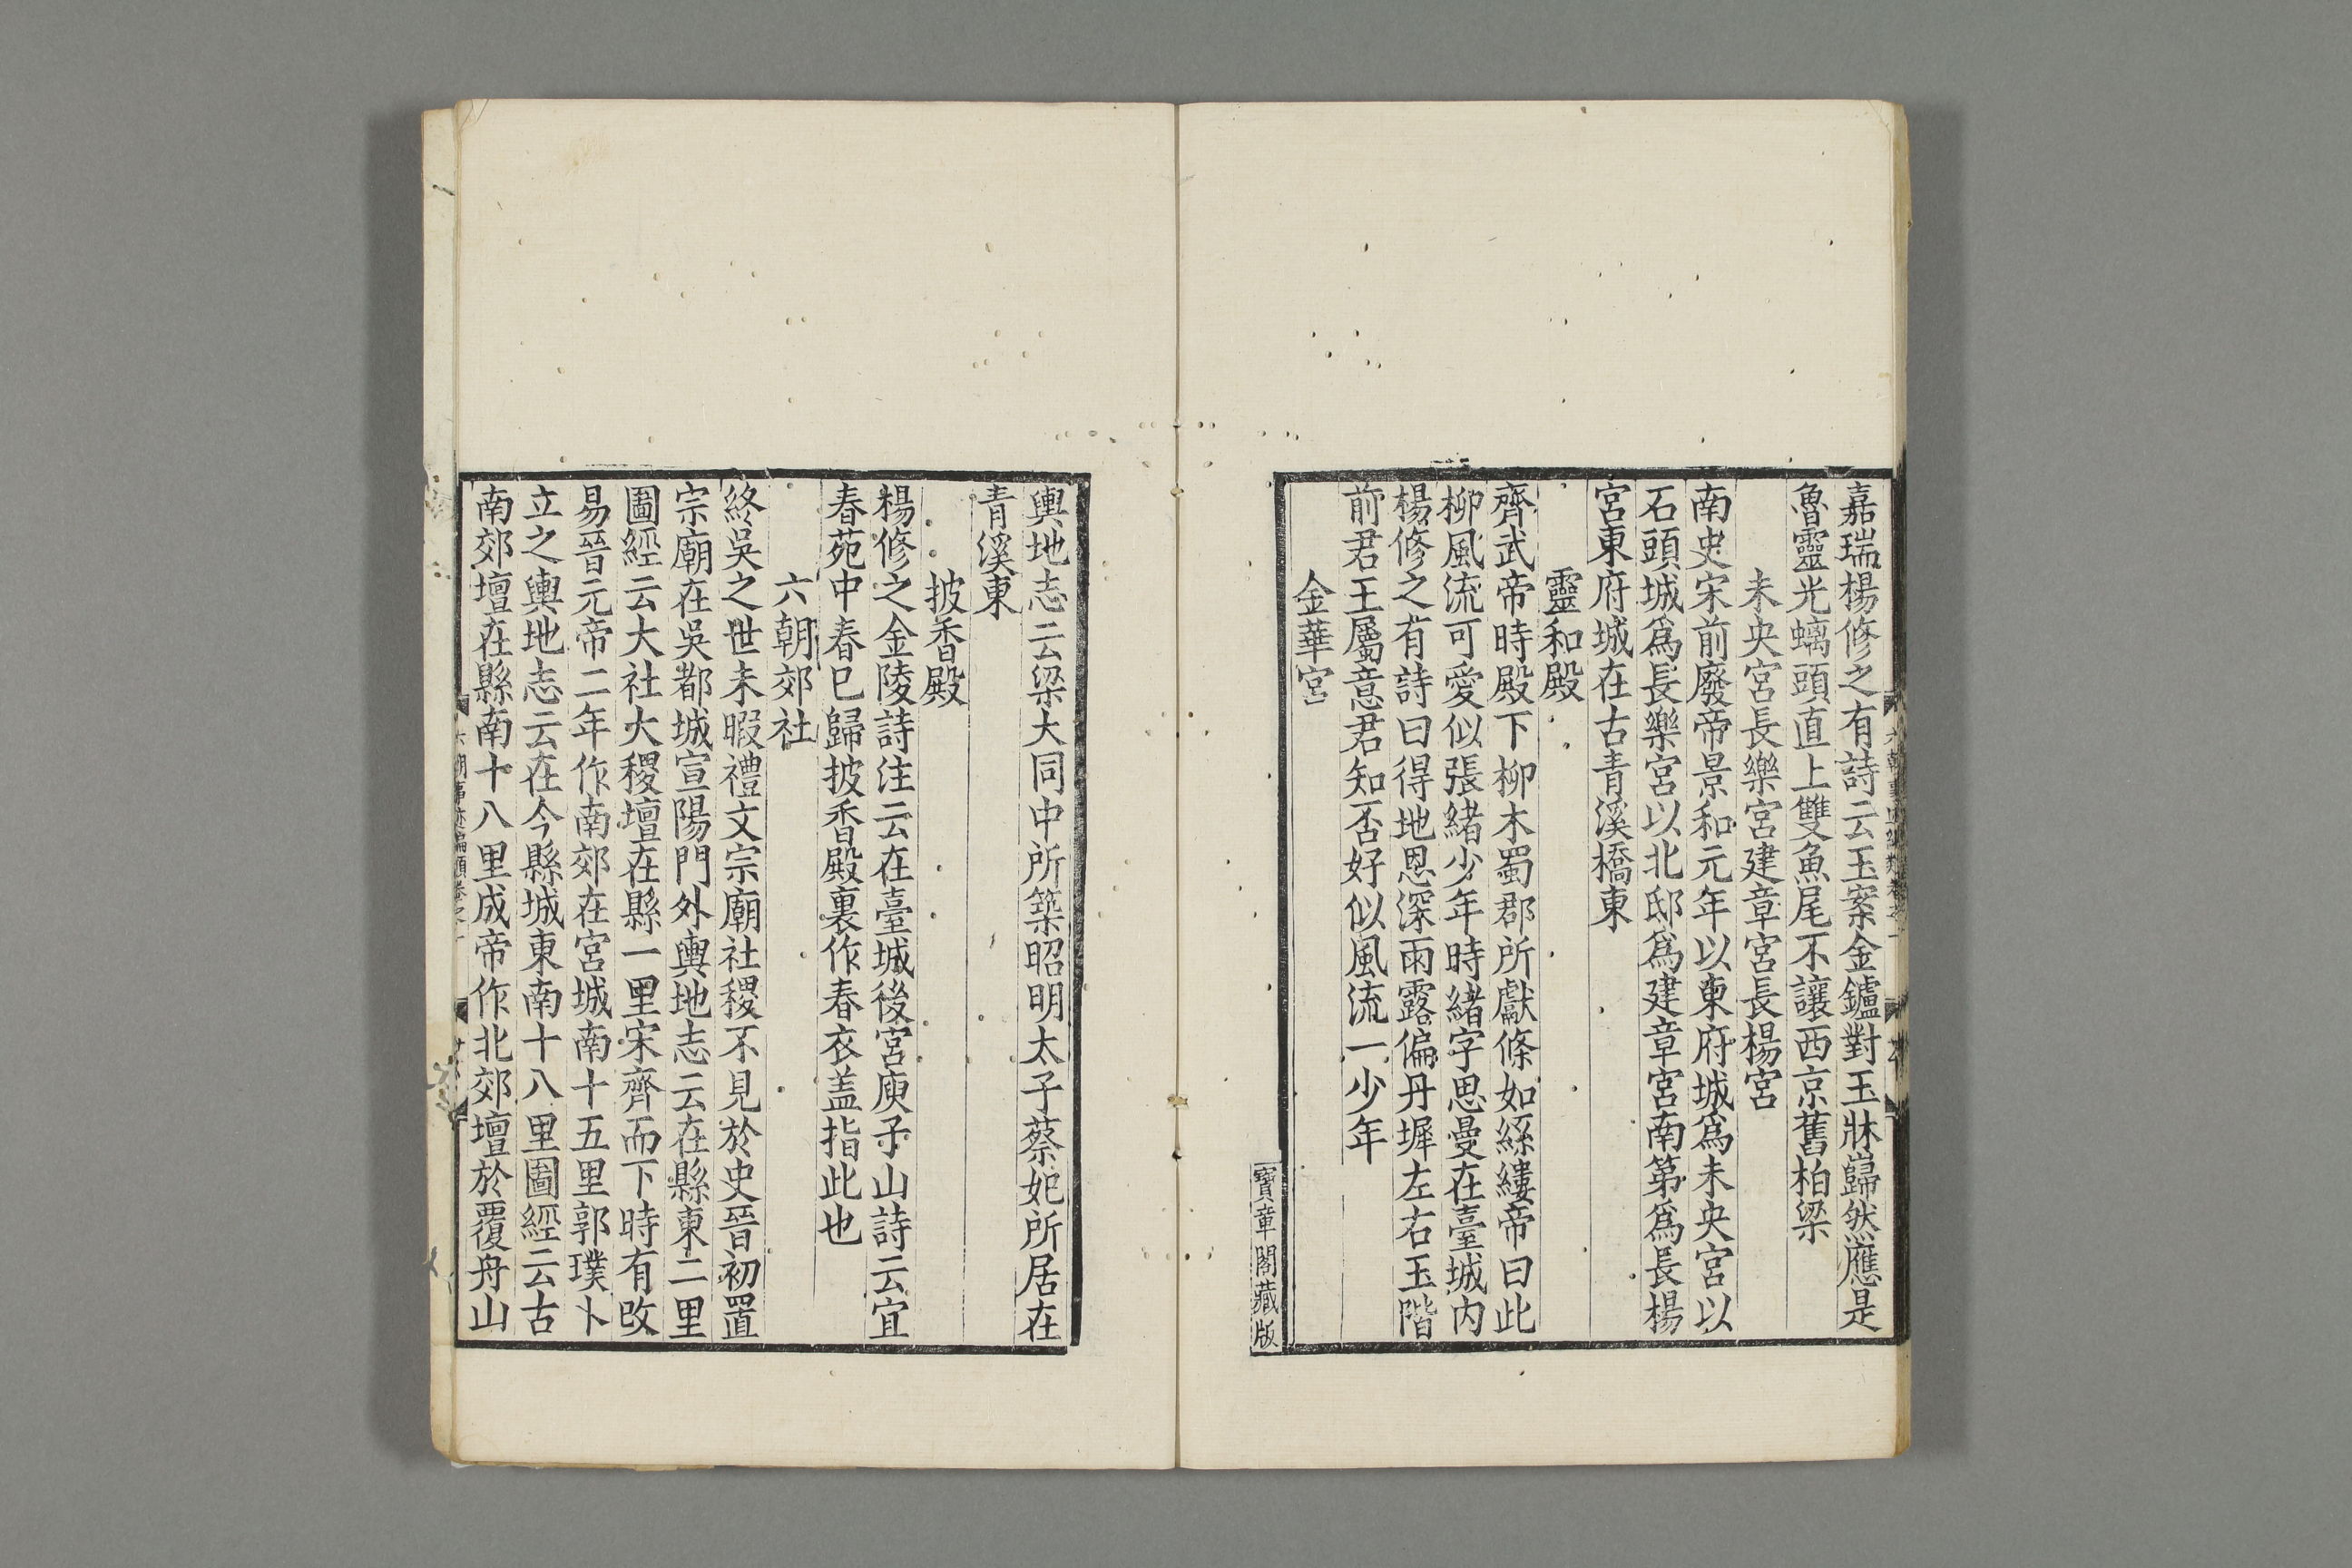 嘉瑞楊修之有詩云玉案金鑪對玉牀巋然應是
魯靈光螭頭直上雙魚尾不讓西京舊柏梁
未央宮長樂宮建章宮長楊宮
南史宋前廢帝景和元年以東府城爲未央宮以
石頭城爲長樂宮以北邸爲建章宮南第爲長楊
宮東府城在古青溪橋東
靈和殿
齊武帝時殿下柳木蜀郡所獻條如絲縷帝曰此
柳風流可愛似張緒少年時緒字思曼在臺城内
楊修之有詩曰得地恩深雨露偏丹墀左右玉階
前君王屬意君知否好似風流一少年
金華宮
寶章閣藏版
輿地志云梁大同中所築昭明太子蔡妃所居在
青溪東
披香殿
楊修之金陵詩注云在臺城後宮庾子山詩云宜
春苑中春已歸披香殿裏作春衣盖指此也
六朝郊社
終吳之世未暇禮文宗廟社稷不見於史晉初置
宗廟在吳都城宣陽門外輿地志云在縣東二里
圖經云大社大稷壇在縣一里宋齊而下時有改
易晉元帝二年作南郊在宮城南十五里郭璞卜
立之輿地志云在今縣城東南十八里圖經云古
南郊壇在縣南十八里成帝作北郊壇於覆舟山